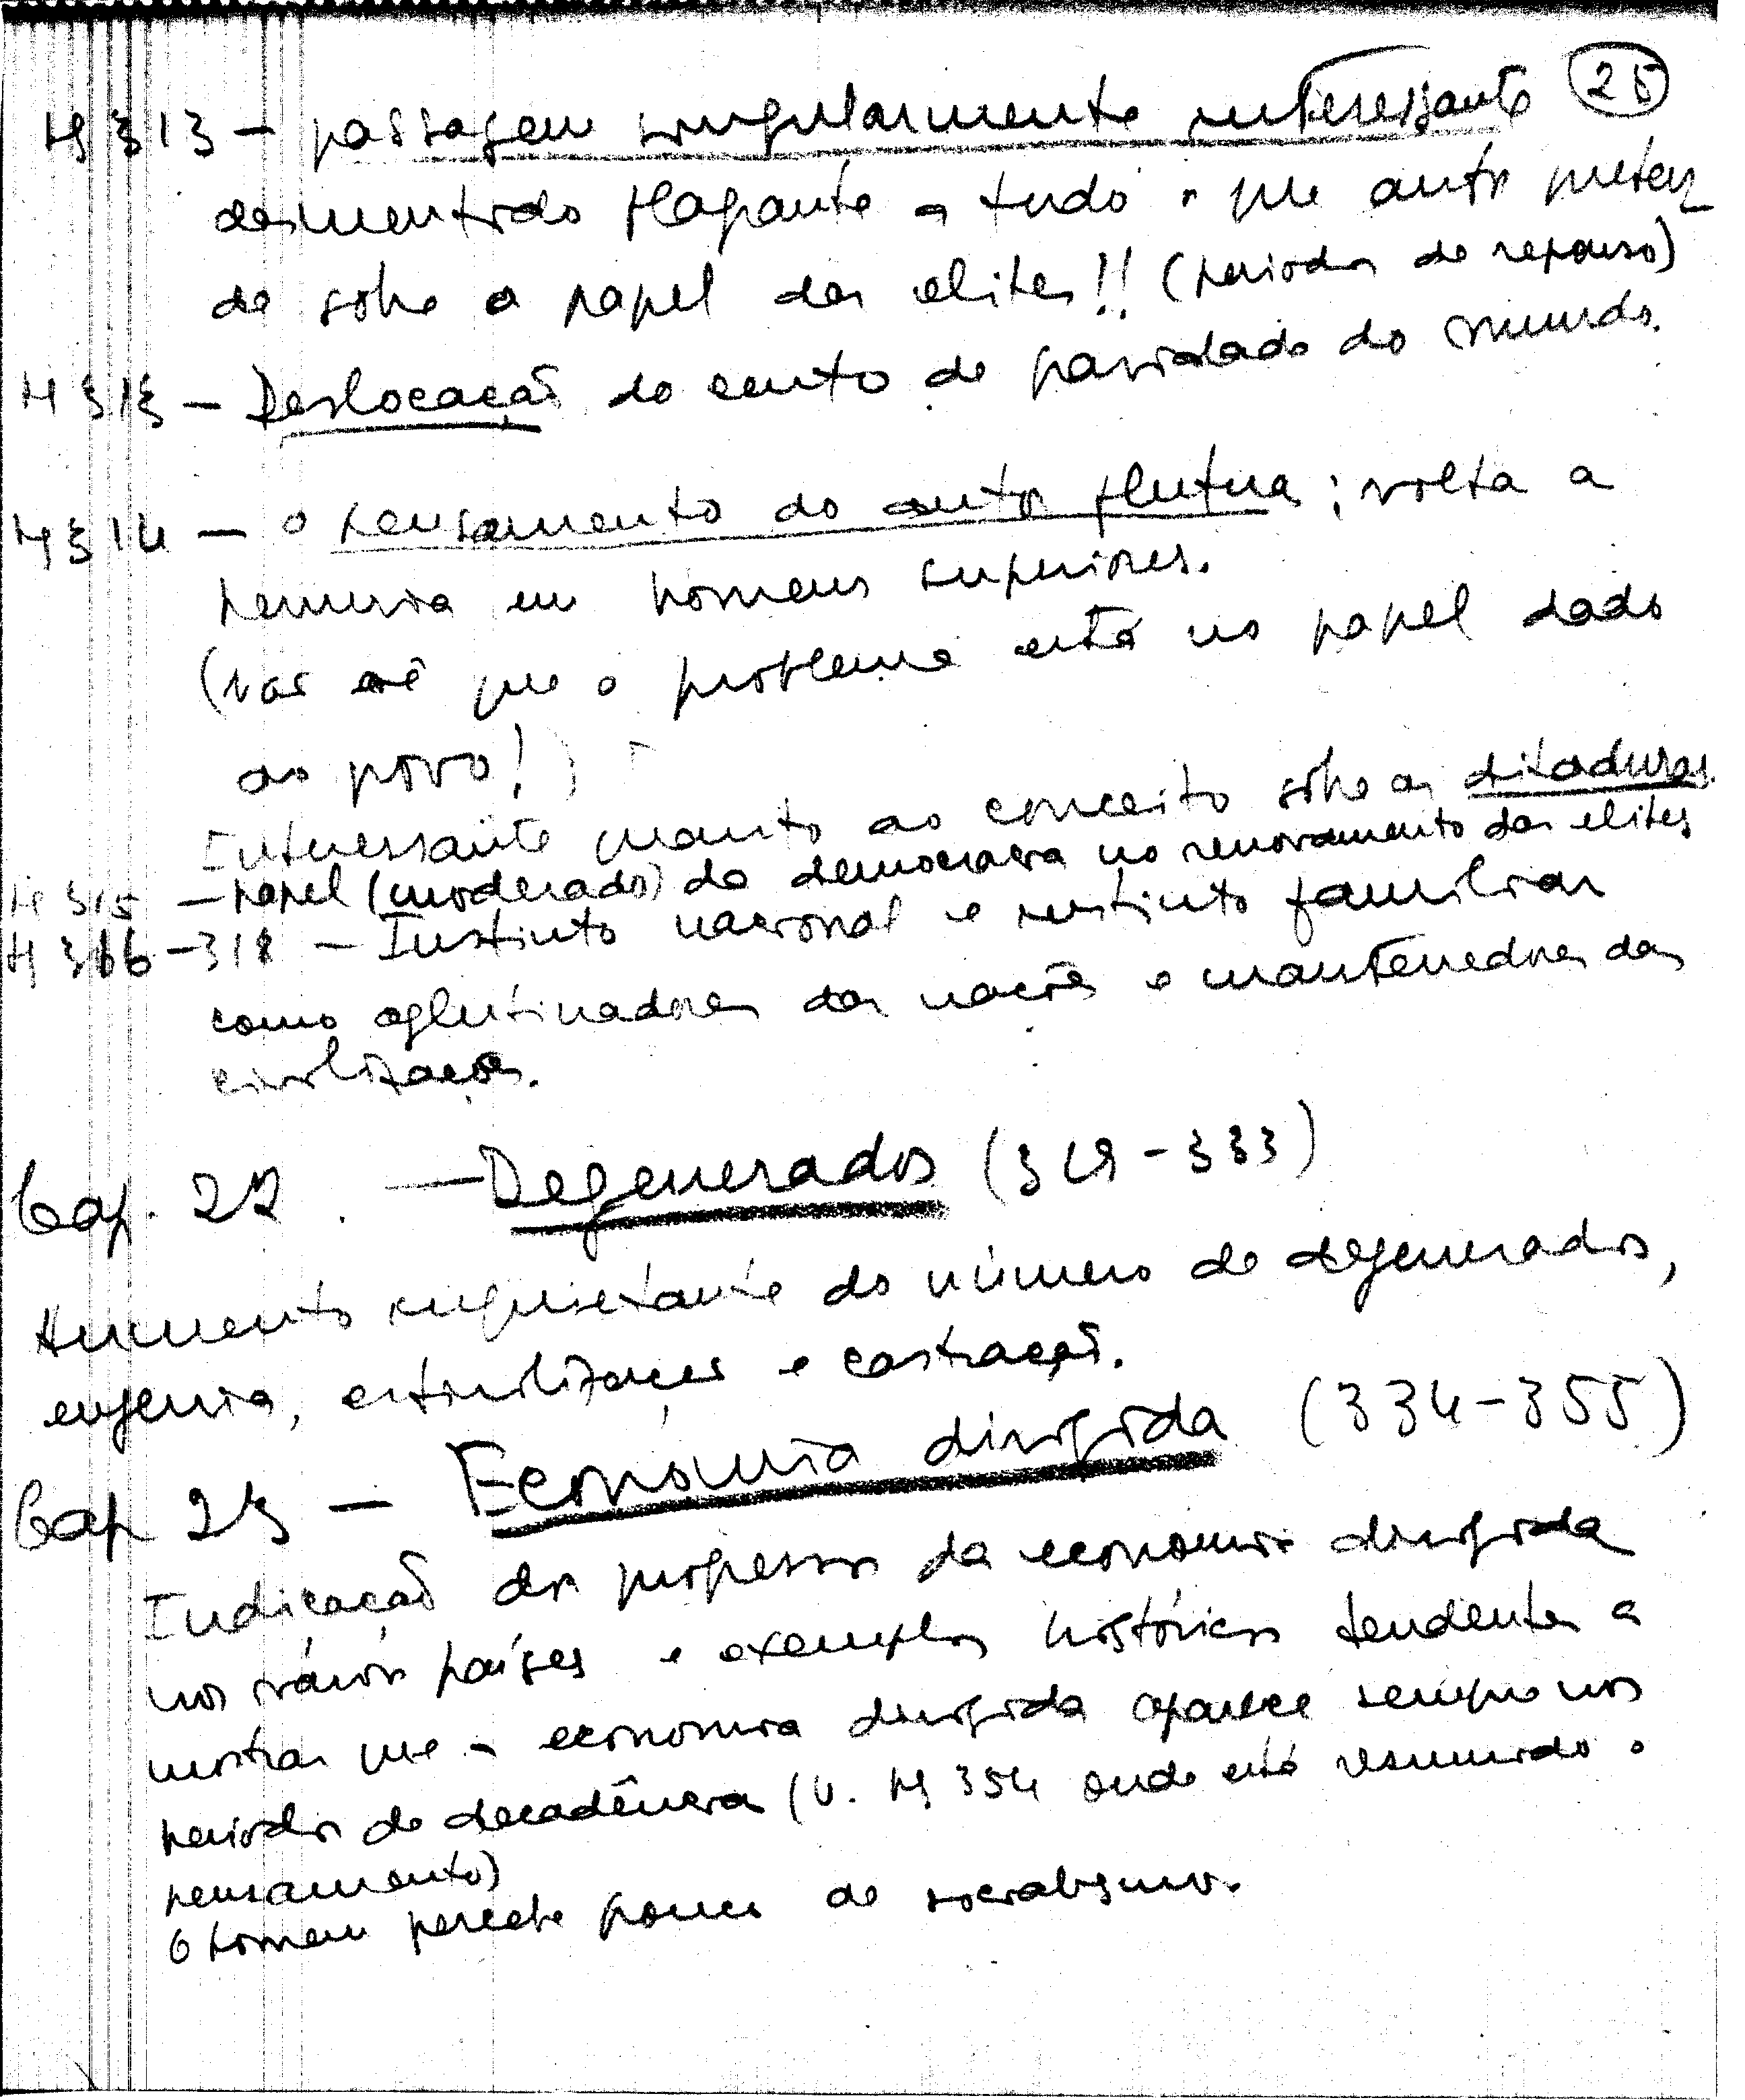 25
Pg 313 – passagem singularmente interessante
desmentido flagrante a tudo o que autor preten
de sobre o papel das elites!! (periodos de repouso)
Pg 313 – Deslocação do centro de gravidade do mundo.
Pg 314 – o pensamento do autor flutua; volta a
penuria em homens superiores.
(não vê que o problema está no papel dado
ao povo!)
Interessante quanto ao conceito sobre as ditaduras.
Pg 315 – papel (moderado) da democracia no renovamento das elites
Pg 316-318 – Instinto nacional e instinto familiar
como aglutinadores das nações e mantenedores das
civilizações.
Cap. 22. – Degenerados (319-333)
Aumento inquietante do número de degenerados,
eugenia, esterilizações e castração.
Cap 23 – Economia dirigida (334-355)
Indicação dos progressos da economia dirigida
nos vários países e exemplos históricos tendentes a
mostrar que a economia dirigida aparece sempre nos
periodos de decadência (V. Pg 354 onde está resumido o
pensamento)
O homem percebe pouco de socialismo.